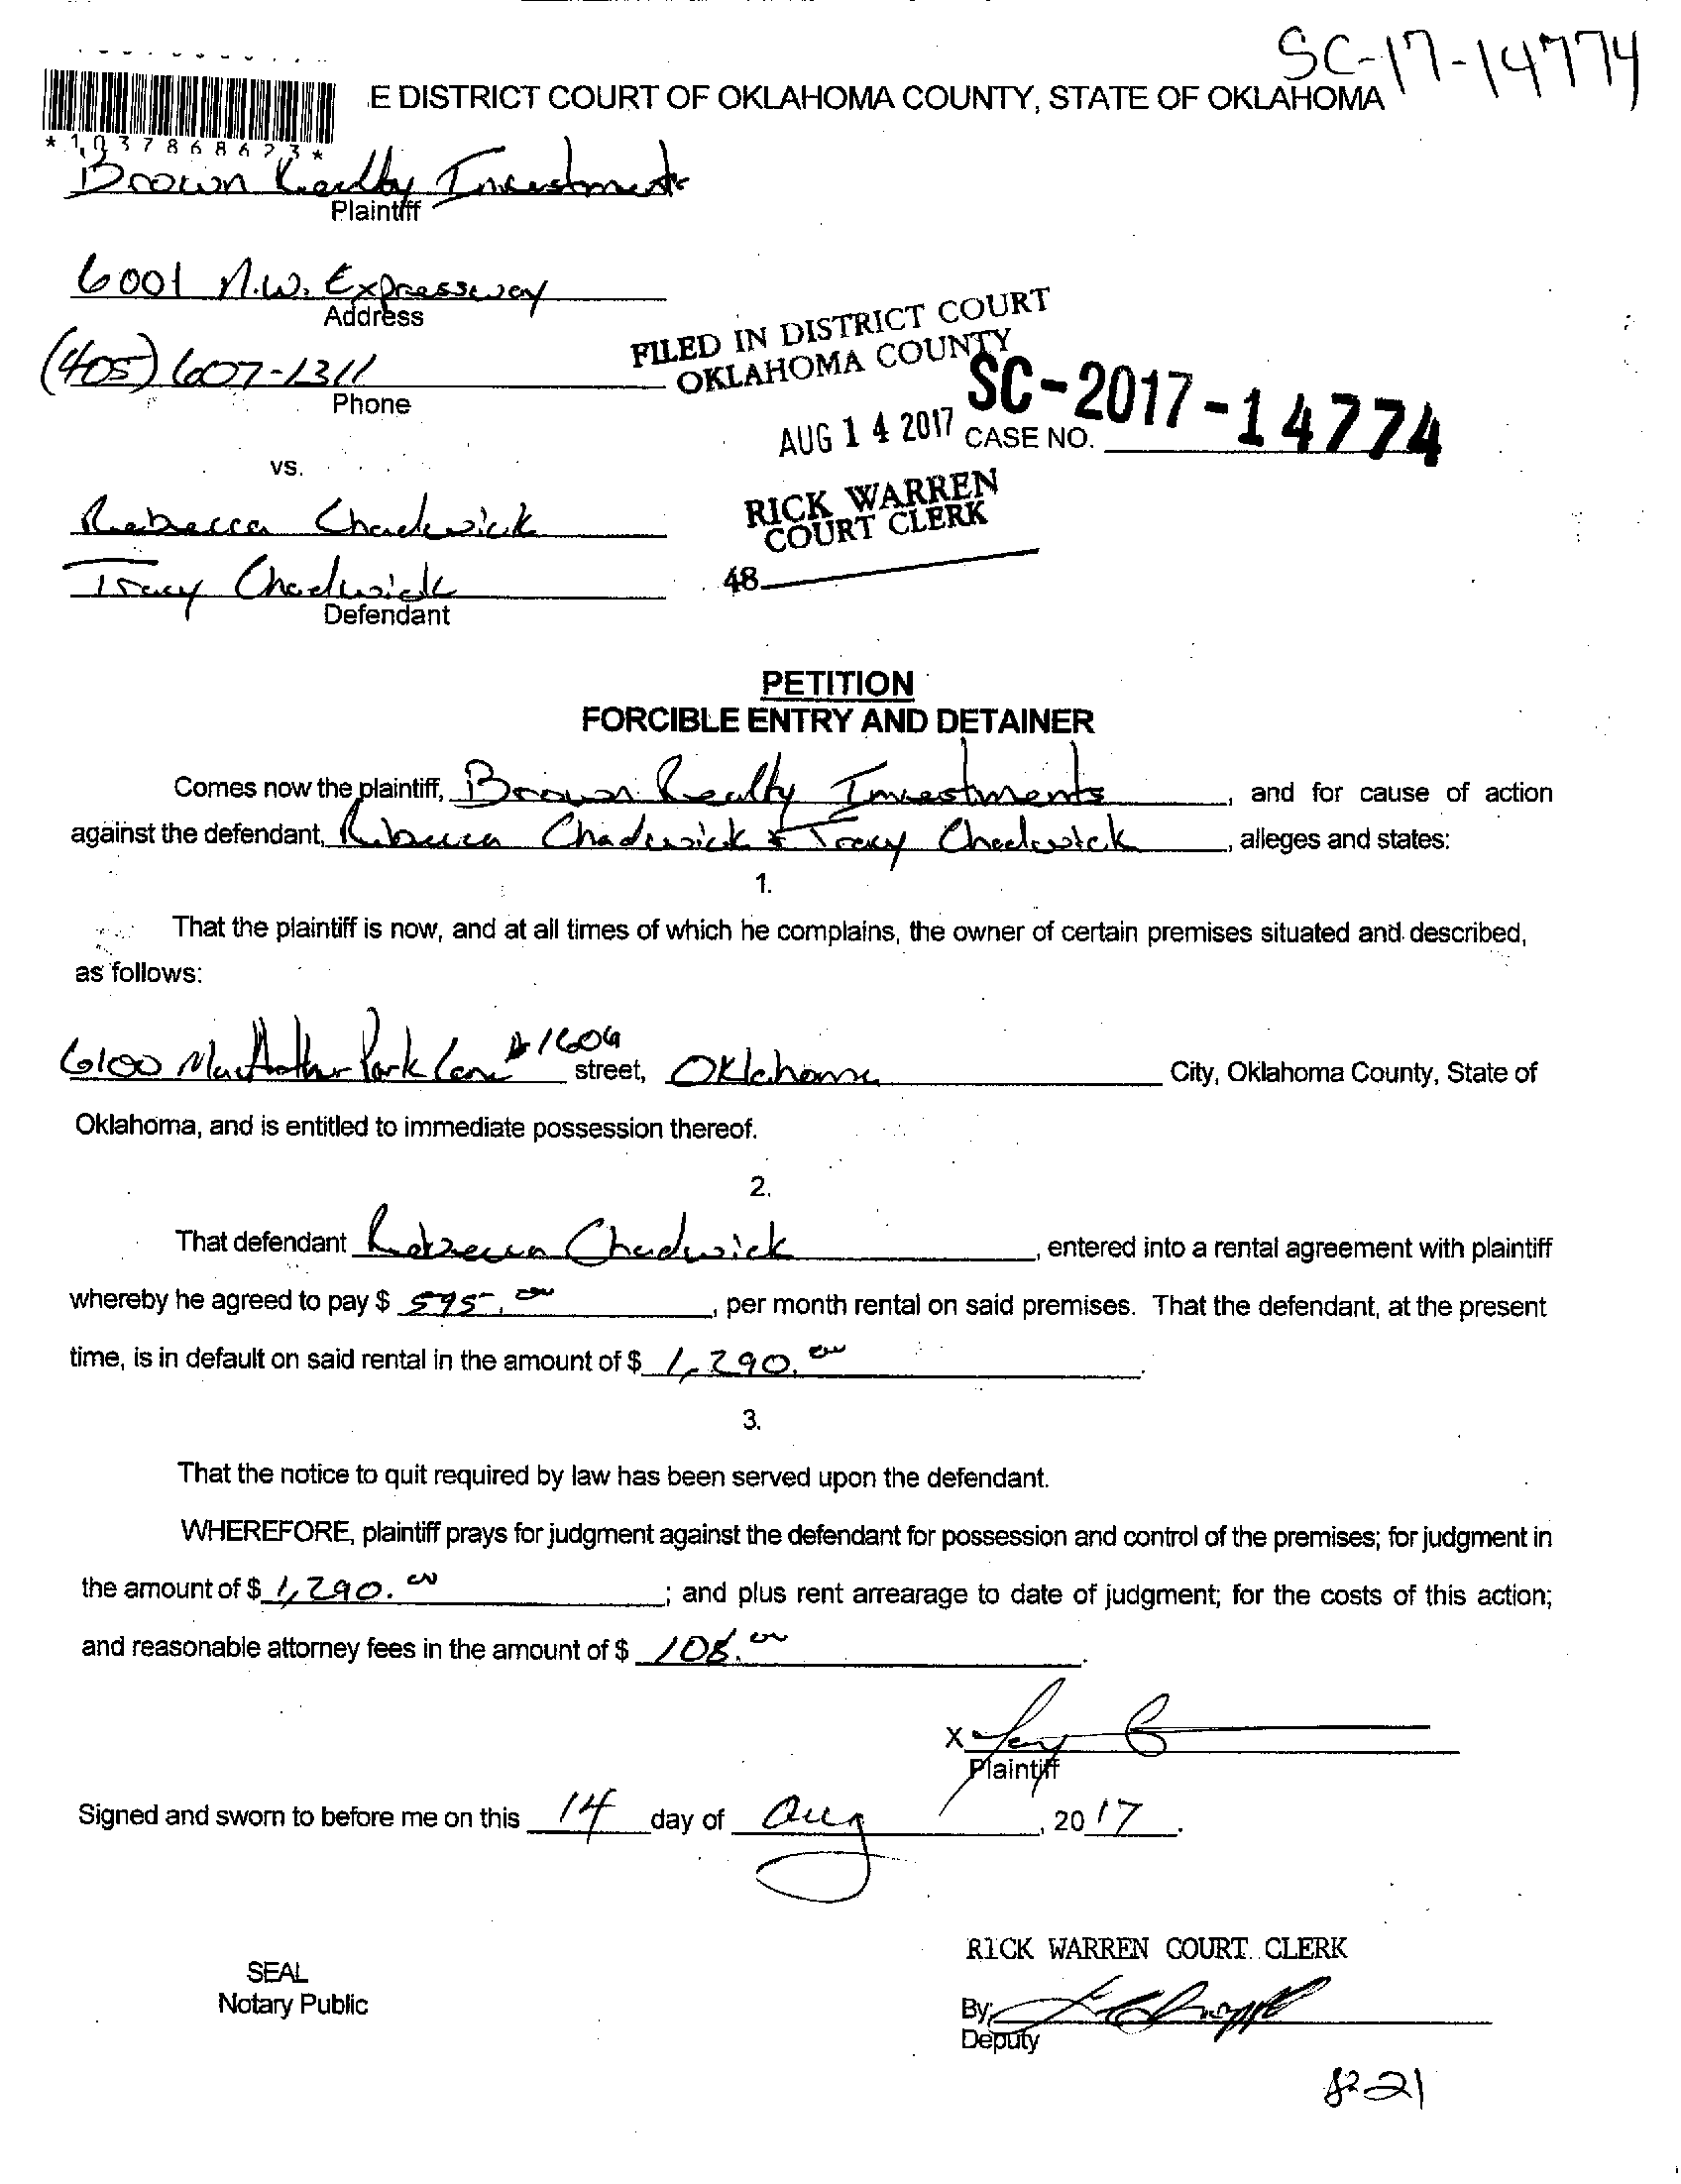 SC-17-14774
E DISTRICT COURT OF OKLAHOMA COUNTY, STATE OF OKLAHOMA
*1037868623*
Brown Realty Investments
Plaintiff
6001 N.W. Expressway
Address
(405) 607-1311
Phone
FILED IN DISTRICT COURT
OKLAHOMA COUNTY
AUG 14 2017
CASE NO. SC-2017-14774
vs.
RICK WARREN
COURT CLERK
48
Rebecca Chadwick
Tracy Chadwick
Defendant
PETITION
FORCIBLE ENTRY AND DETAINER
Comes now the plaintiff, Brown Realty Investments, and for cause of action
against the defendant, Rebecca Chadwick & Tracy Chadwick, alleges and states:
1.
That the plaintiff is now, and at all times of which he complains, the owner of certain premises situated and described,
as follows:
6100 MacArthur Park Lane #160G street, Oklahoma City, Oklahoma County, State of
Oklahoma, and is entitled to immediate possession thereof.
2.
That defendant Rebecca Chadwick, entered into a rental agreement with plaintiff
whereby he agreed to pay $ 595.00, per month rental on said premises. That the defendant, at the present
time, is in default on said rental in the amount of $ 1,290.00.
3.
That the notice to quit required by law has been served upon the defendant.
WHEREFORE, plaintiff prays for judgment against the defendant for possession and control of the premises; for judgment in
the amount of $ 1,290.00; and plus rent arrearage to date of judgment; for the costs of this action;
and reasonable attorney fees in the amount of $ 108.00.
X
Plaintiff
Signed and sworn to before me on this 14 day of Aug, 2017.
RICK WARREN COURT CLERK
SEAL
Notary Public
By:
Deputy
8-21